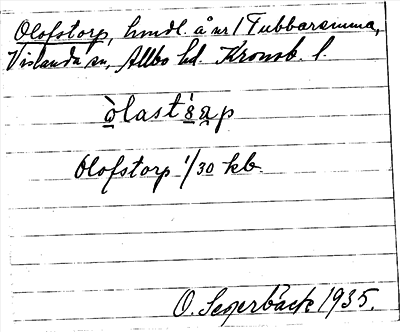 Olofstorp, hmdl. å nr 1 Tubbaremma,
Vislanda sn, Allbo hd. Kronob. l.
òlast's̱a̱p
Olofstorp 1/30 kb.
O. Segerbäck 1935.